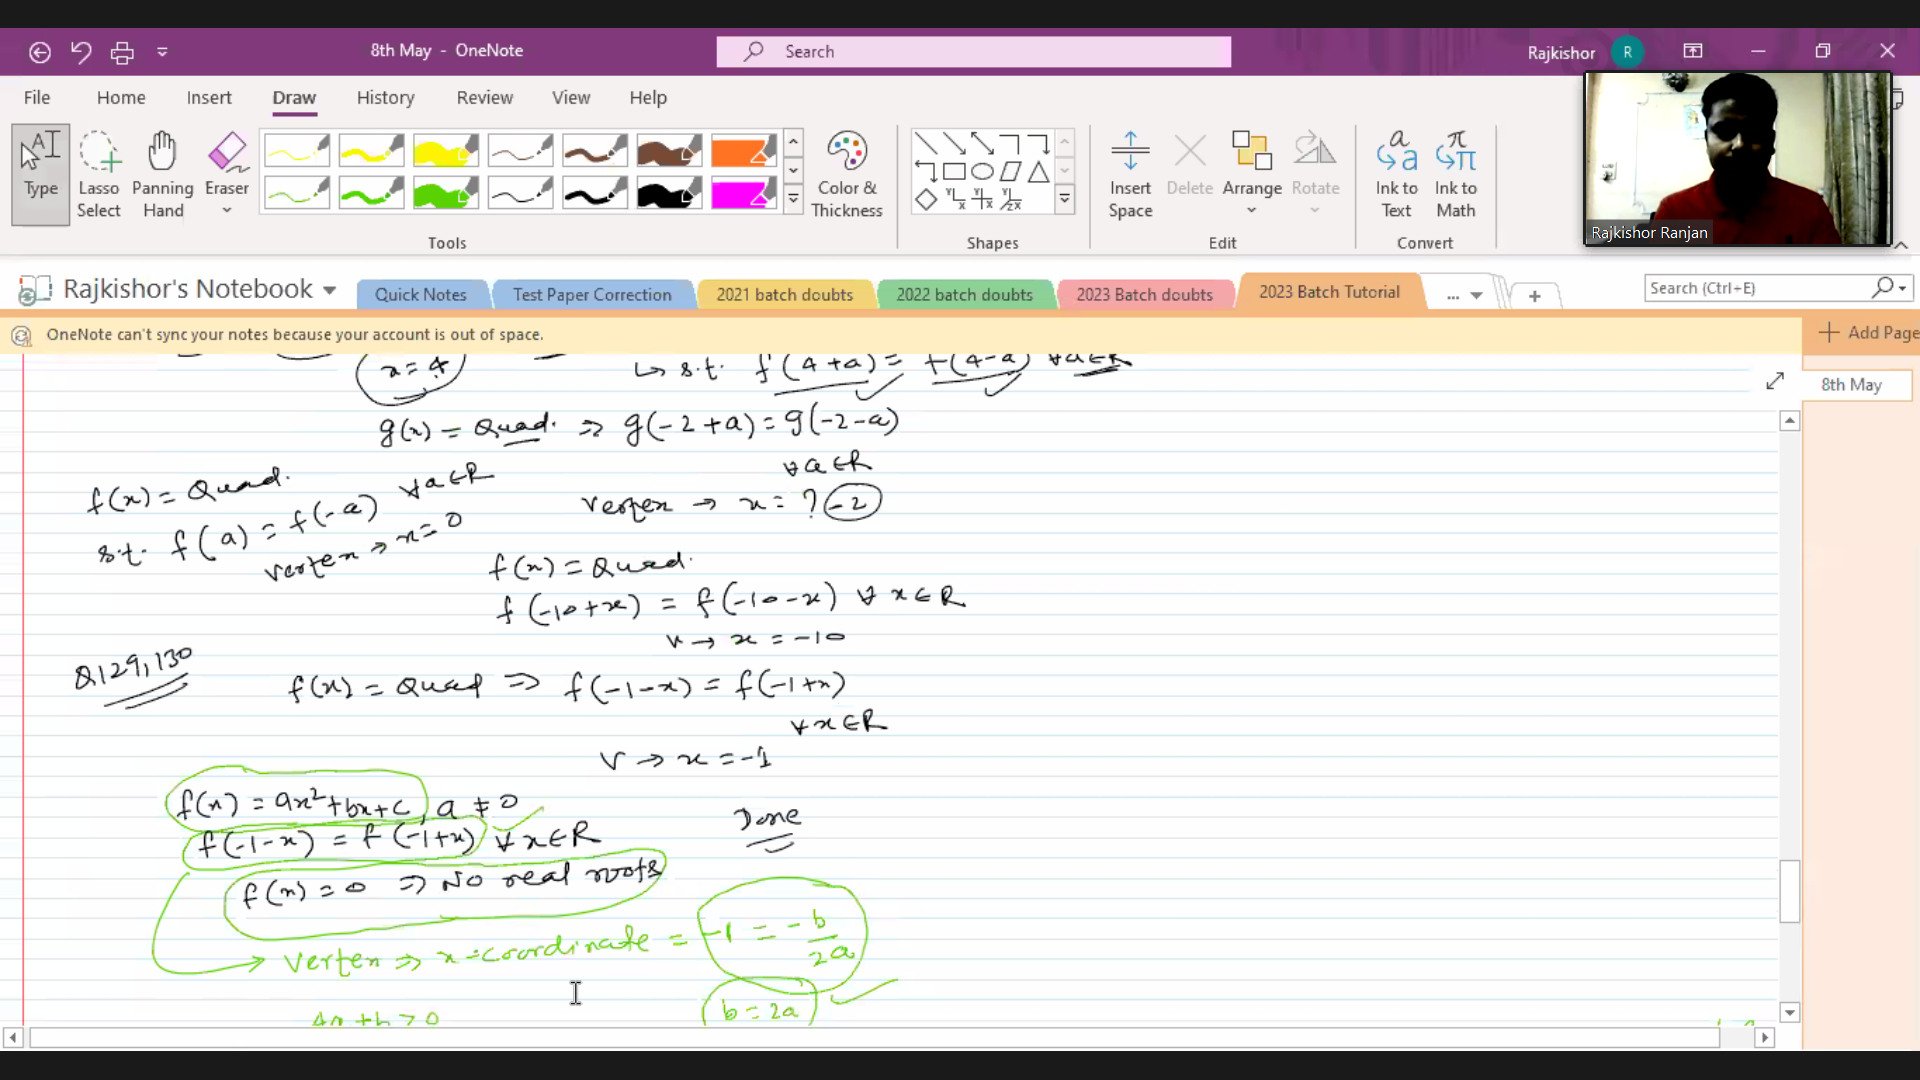 8th May - OneNote
Search
Rajkishor R
File Home Insert Draw History Review View Help
Type
Lasso Select
Panning Hand
Eraser
Color & Thickness
Insert Space
Delete
Arrange
Rotate
Ink to Text
Ink to Math
Tools
Shapes
Edit
Convert
Rajkishor Ranjan
Rajkishor's Notebook
Quick Notes
Test Paper Correction
2021 batch doubts
2022 batch doubts
2023 Batch doubts
2023 Batch Tutorial
...
+
Search (Ctrl+E)
OneNote can't sync your notes because your account is out of space.
+ Add Page
8th May
x = 4
↳ s.t. f(4+a) = f(4-a) ∀a∈R
g(x) = Quad. ⇒ g(-2+a) = g(-2-a)
∀a∈R
f(x) = Quad.
s.t. f(a) = f(-a) ∀a∈R
vertex → x = 0
vertex → x = ? -2
f(x) = Quad.
f(-10+x) = f(-10-x) ∀ x∈R
v → x = -10
Q129,130
f(x) = Quad ⇒ f(-1-x) = f(-1+x)
∀x∈R
v → x = -1
f(x) = ax²+bx+c, a ≠ 0
f(-1-x) = f(-1+x) ∀x∈R
Done
f(x) = 0 ⇒ No real roots
vertex ⇒ x-coordinate = -1 = -b/2a
b = 2a
4a+b>0